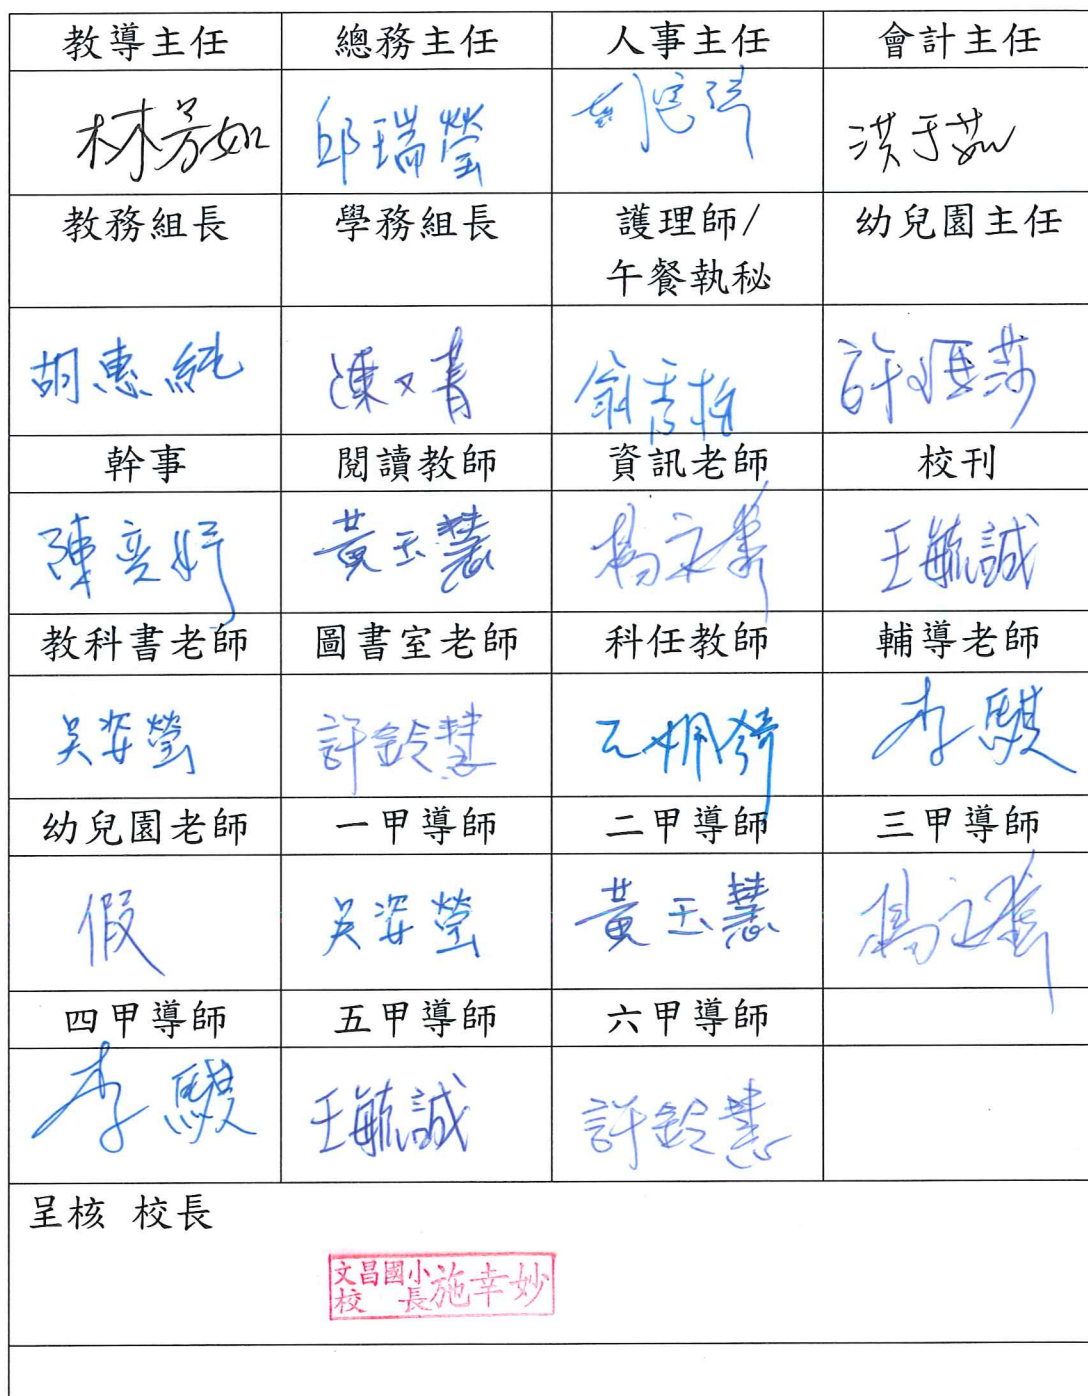 教導主任 總務主任 人事主任 會計主任
林芳如 邱瑞瑩 洪于茹
教務組長 學務組長 護理師/ 幼兒園主任
午餐執秘
胡惠純 陳又菁 許雅莎
幹事 閱讀教師 資訊老師 校刊
陳奕妤 黃玉慧 王毓誠
教科書老師 圖書室老師 科任教師 輔導老師
吳姿瑩 許鈴慧 李騏
幼兒園老師 一甲導師 二甲導師 三甲導師
假 吳姿瑩 黃玉慧
四甲導師 五甲導師 六甲導師
李騏 王毓誠 許鈴慧
呈核 校長
文昌國小
校 長 施幸妙